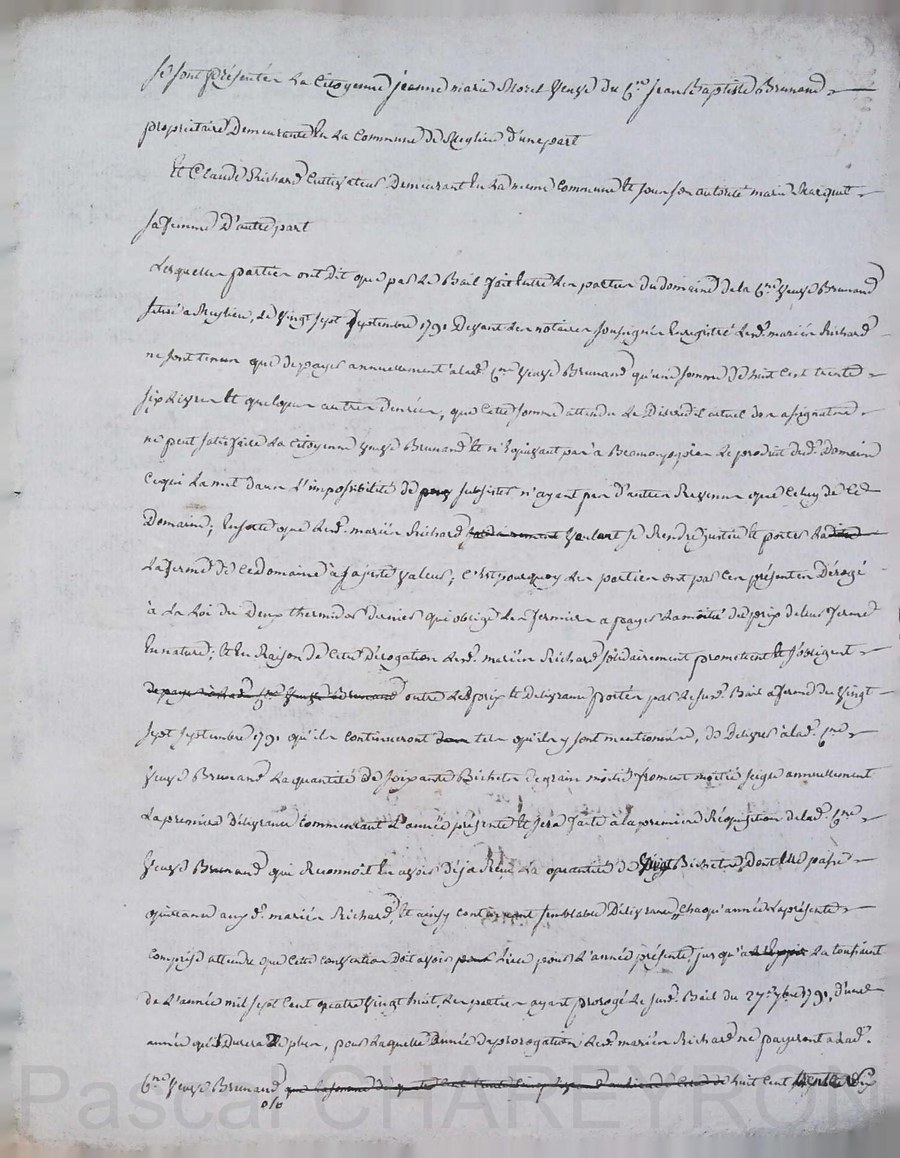 Se sont présentés La Citoyenne jeanne marie Morel Veuve du Cen jean Baptiste Brunand
propriétaire Demeurante En La Commune de Meylieu d'une part
Et Claude Richard Cultivateur Demeurant En La meme Commune Et sous son autorité marie
sa femme D'autre part
Lesquelles parties ont dit que par Le Bail fait Entre Les parties du domaine de la Cne Veuve Brunand
situé a Meylieu, Le Vingt sept septembre 1791 Devant Les notaires soussignés Enregistré Lesd. mariés Richard
ne sont tenus que de payer annuellement a lad. Cne Veuve Brunand qu'une somme De huit Cent trente
six Livres Et quelques autres denrées, que Cette somme attendu Le Discredit actuel des assignats
ne peut satisfaire La Citoyenne Veuve Brunand Et n'Equivaut pas a Beaucoup près Le produit dud. Domaine
Ce qui La met dans L'impossibilité de subsister n'ayant pas d'autres Revenus que Celuy de Ce
Domaine; Ensorte que Lesd. mariés Richard Voulant se Rendre justice Et porter
La ferme de Ce Domaine à sa juste Valeur; C'Est pourquoy Les parties ont par Ces présentes Dérogé
à La Loi du Deux thermidor dernier qui oblige Les fermiers a payer La moitié du prix de leur ferme
En nature; Et En Raison de Cette Dérogation Lesd. mariés Richard solidairement promettent Et s'obligent
de payer à lad. Cne Veuve Brunand outre Led prix Et Délivrance portés par Le susd. Bail a ferme du Vingt
sept septembre 1791 qu'ils Continueront tels qu'ils y sont mentionnés, de Delivrer à lad. Cne
Veuve Brunand La quantité de soixante Bichets de grain moitié froment moitié seigle annuellement
La premiere Délivrance Commencant L'année présente Et sera faite à la premiere Réquisition de lad. Cne
Veuve Brunand qui Reconnoit En avoir déja Reçu La quantité de Vingt Bichets Dont Elle passe
quittance auxd. mariés Richard, Et ainsy Continuer semblable Délivrance Chaqu'année La présente
Comprise attendu que Cette Convention doit avoir Lieu pour L'année présente, jusqu'a La toussaint
de L'année mil sept Cent quatre Vingt huit, Les parties ayant prorogé Le susd. Bail du 27 7bre 1791, d'une
année qui Durera De plus, pour Laquelle année de prorogation Lesd. mariés Richard ne payeront a Lad.
Cne Veuve Brunand que La somme de huit Cent trente six
Pascal CHAREYRON